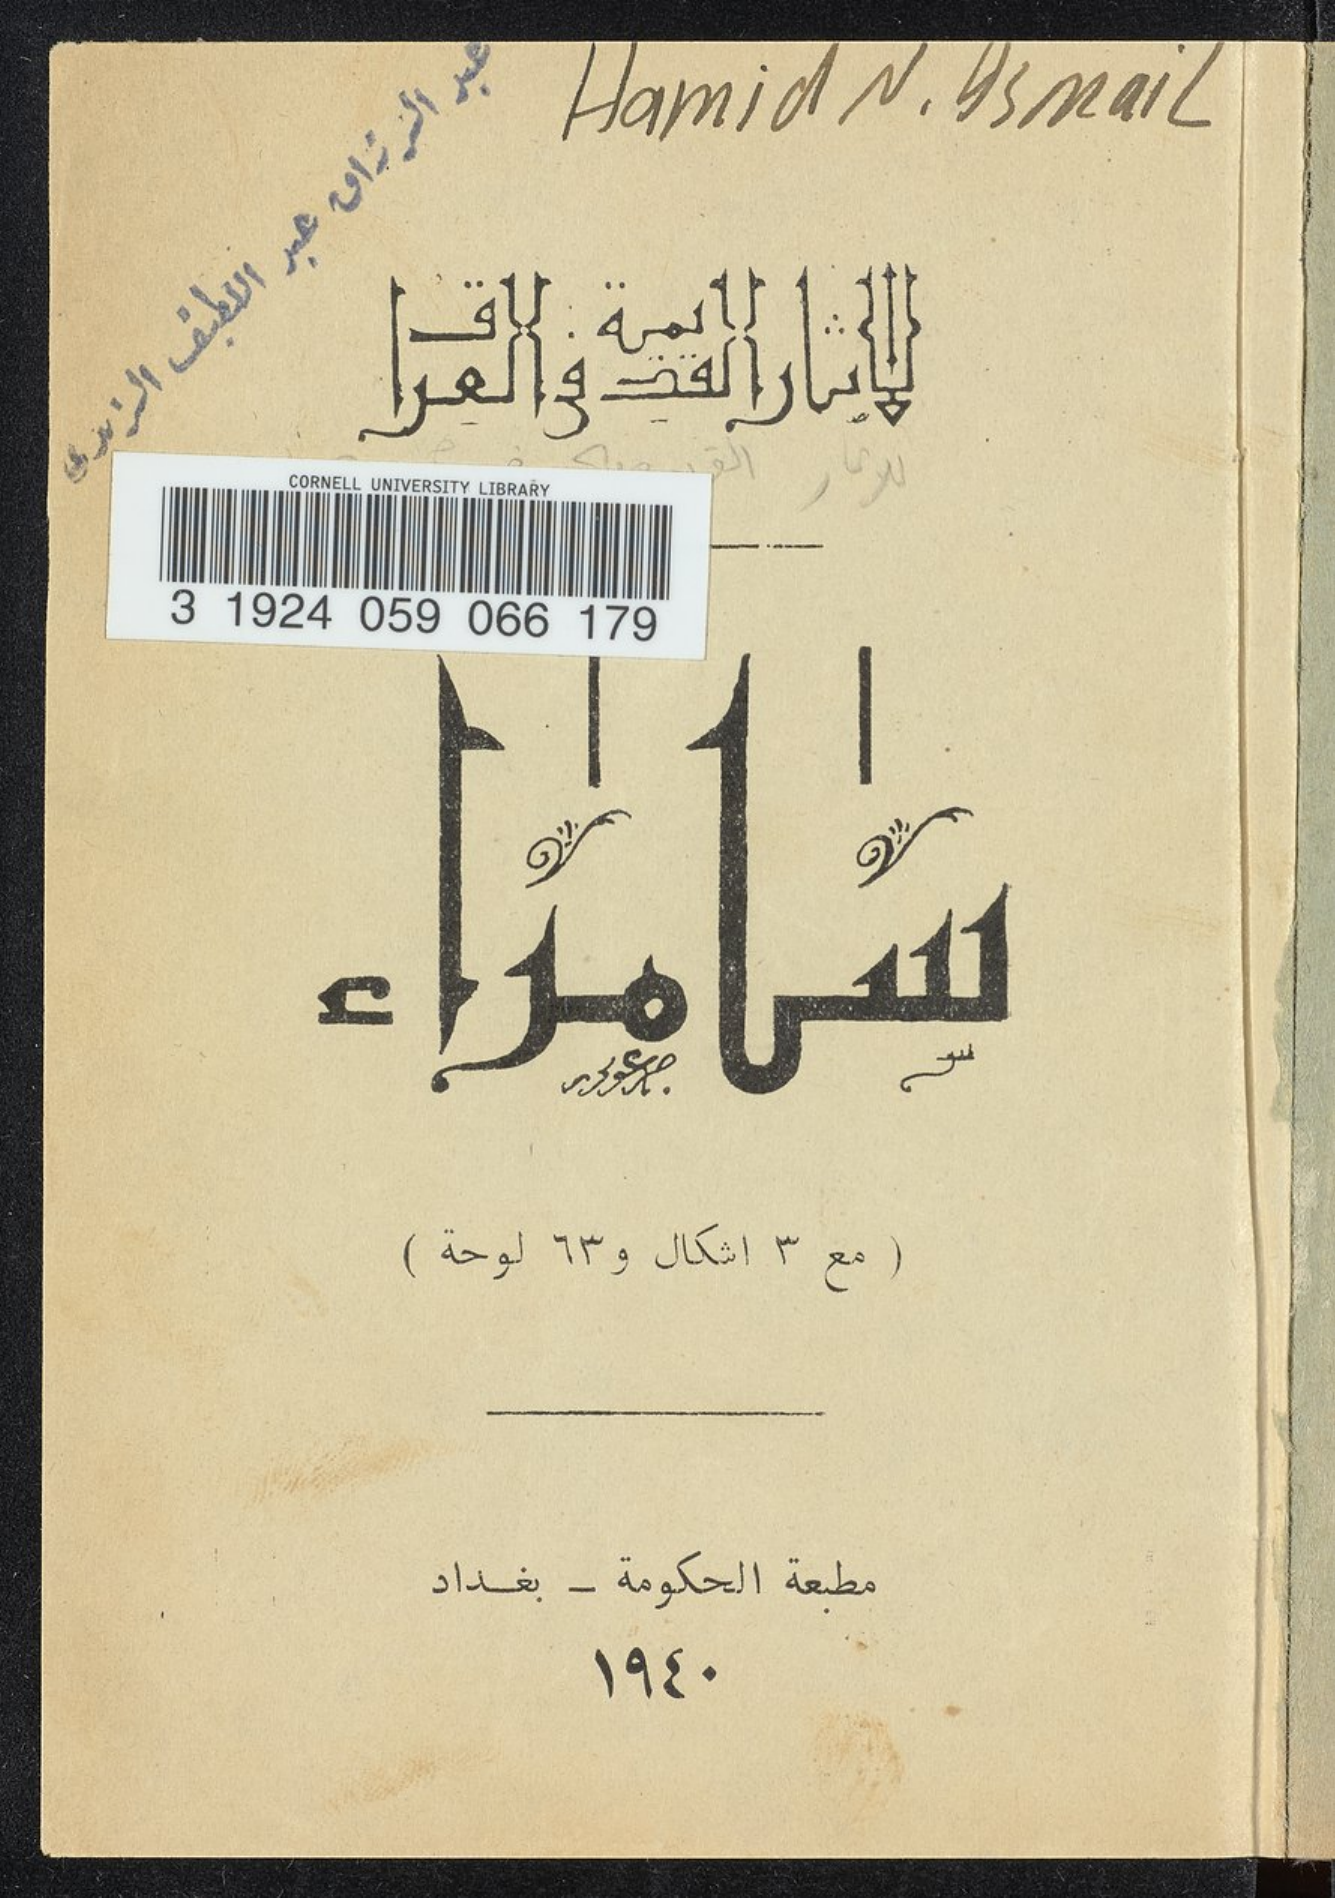 Hamid N. Ismail
عبد الرزاق عبد اللطيف
للآثار القديمة في العراق
CORNELL UNIVERSITY LIBRARY
3 1924 059 066 179
سامراء
( مع ٣ اشكال و٦٣ لوحة )
مطبعة الحكومة – بغداد
١٩٤٠